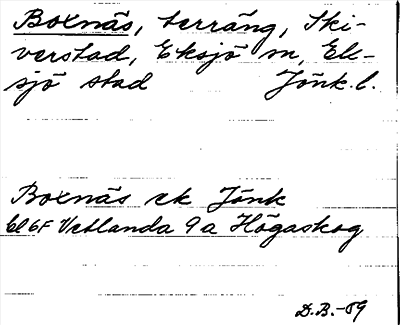 Boxnäs, terräng, Ski-
verstad, Eksjö m, Ek-
sjö stad Jönk. l.
Boxnäs ek Jönk
bl 6F Vetlanda 9a Högaskog
D.B.-59